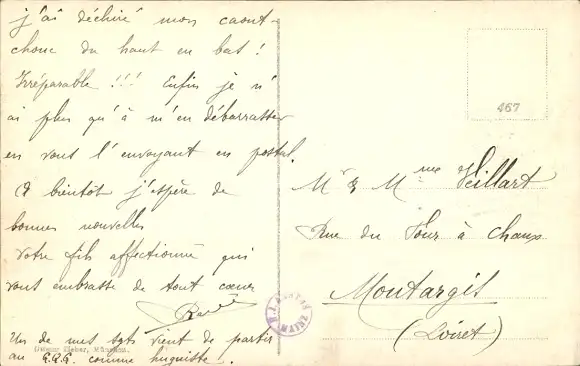 j'ai déchiré mon caout-
chouc du haut en bas !
Irréparable !!! Enfin je n'
ai plus qu'à m'en débarrasser
en vous l'envoyant en postal.
A bientôt j'espère de
bonnes nouvelles
Votre fils affectionné qui
vous embrasse de tout coeur
Un de mes sgts vient de partir
au comme
467
Mr & Mme Veillart
Rue du Four à Chaux
Montargis
(Loiret)
MAINZ